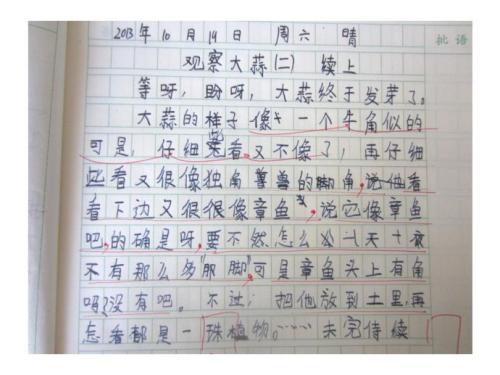 2013年10月19日 周六 晴
批语
观察大蒜(二) 续上
等呀，盼呀，大蒜终于发芽了。
大蒜的样子像一个牛角似的
可是，仔细看看又不像了，再仔细
看又很像独角兽的脚角，说他看
看下边又很很像章鱼，说它像章鱼
吧，的确是呀，要不然怎么
不有那么多“脚”，可是章鱼头上有角
吗？没有吧。不过，把他放到土里，再
怎看都是一珠植物。……未完待续